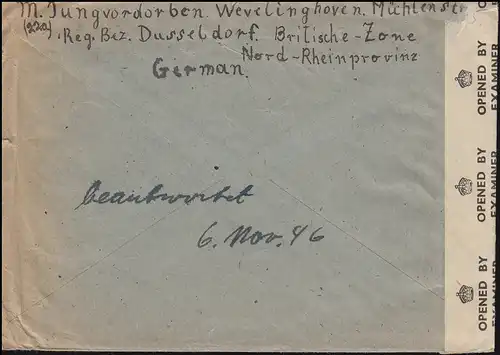 M. Jungvordorben. Wevelinghoven. Mühlenstr
(22a)
.Reg. Bez. Dusseldorf. Britische-Zone
Nord-Rheinprovinz
German.
beantwortet
6. Nov. 46
OPENED BY
EXAMINER
OPENED BY
EXAMINER
OPENED BY
EXAMINER